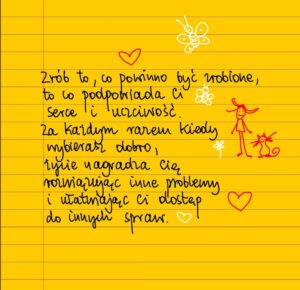 Zrób to, co powinno być zrobione,
to co podpowiada Ci
serce i uczciwość.
Za każdym razem kiedy
wybierasz dobro,
życie nagradza Cię
rozwiązując inne problemy
i ułatwiając Ci dostęp
do innych spraw.